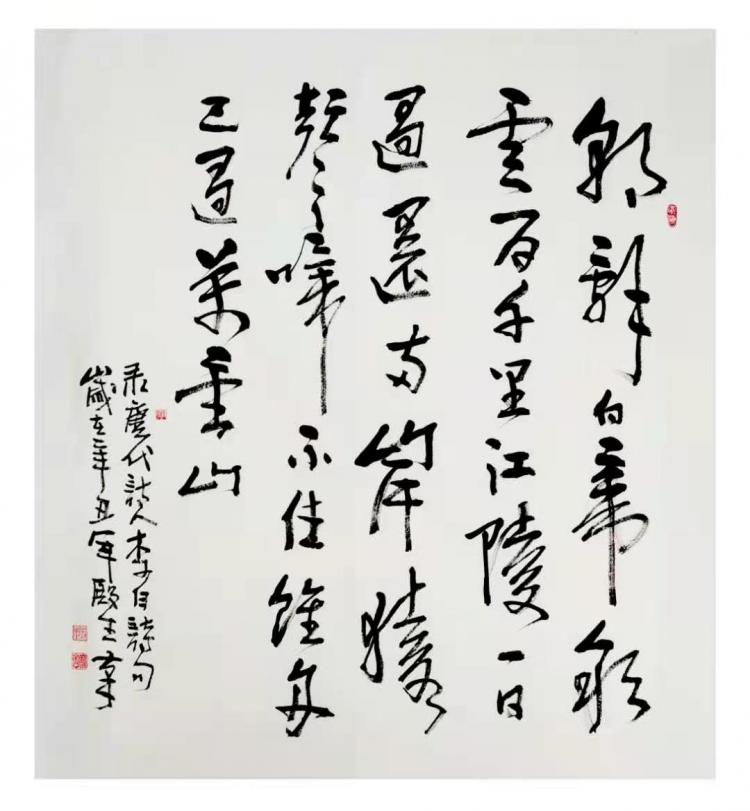 朝辭白帝彩
云间千里江陵一日
過還兩岸猿
聲啼不住輕舟
已過萬重山
录唐代詩人李白詩句
歲在辛丑年